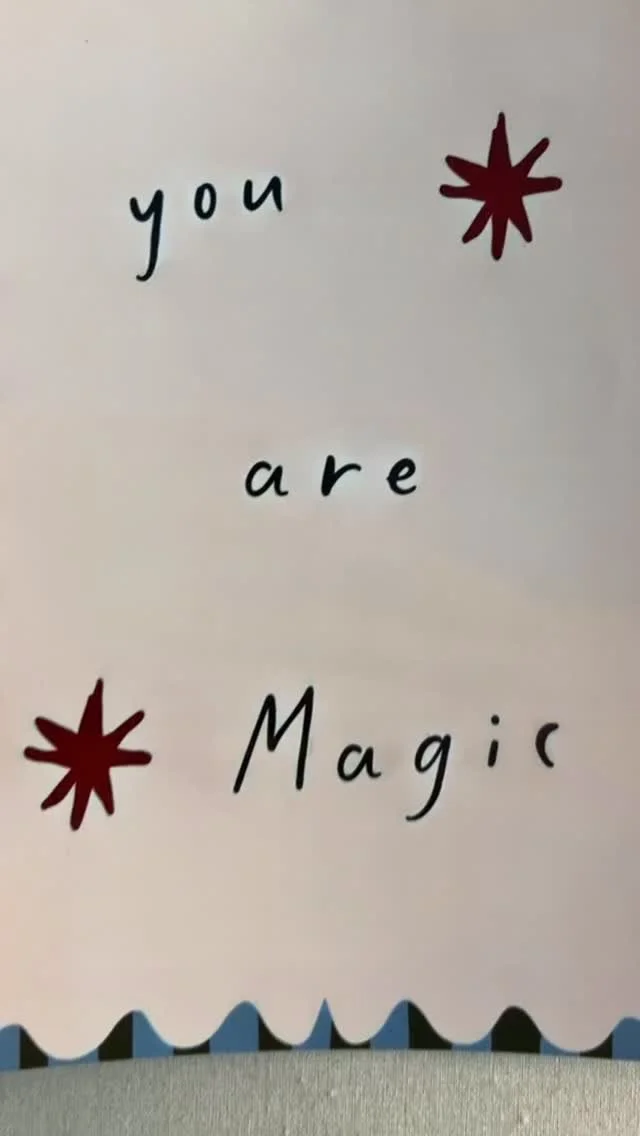 you
are
Magic